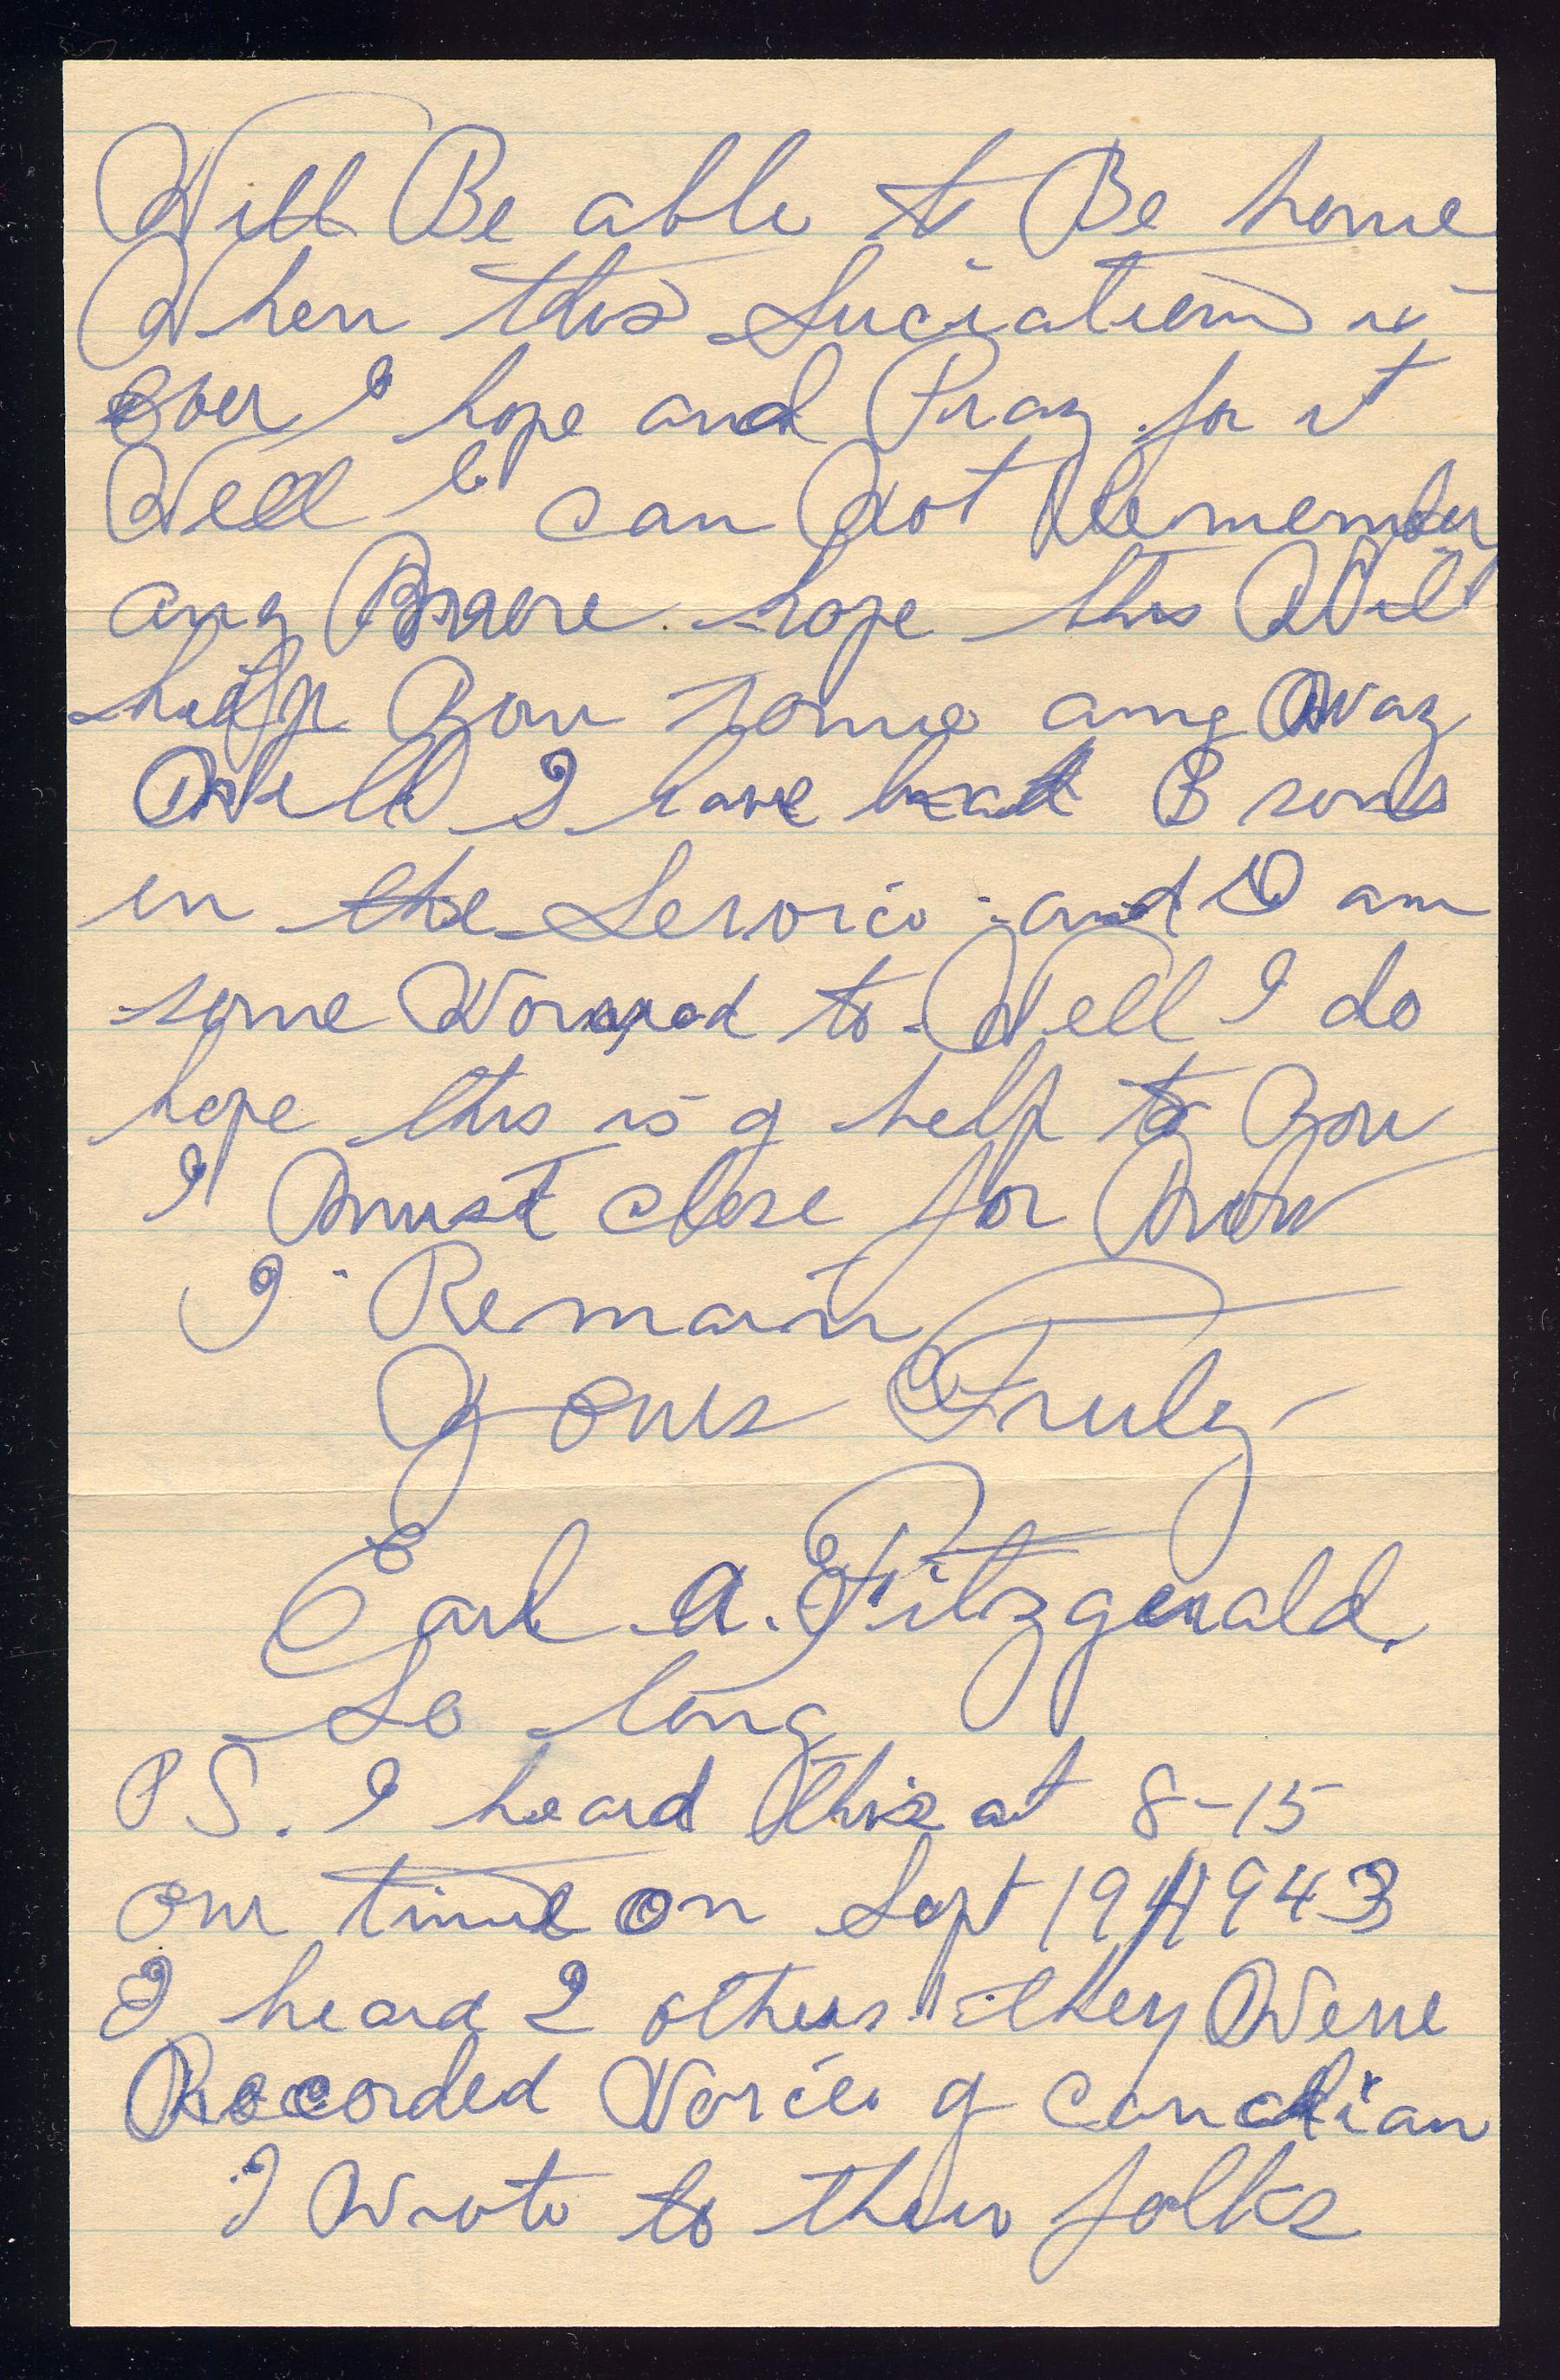 Will Be able to Be home
When this Suciation is
over I hope and Pray for it
Well I can Not Remember
any More hope this Will
help You some any Way
Well I have 3 sons
in the Service and I am
some Worryed to Well I do
hope this is a help to You
I Must close for Now
I Remain
Yours Truly
Earl A. Fitzgerald.
So long
PS. I heard this at 8-15
our time on Sept 19/1943
I heard 2 others they Were
Recorded Voices a Canadian
I Wrote to their folks